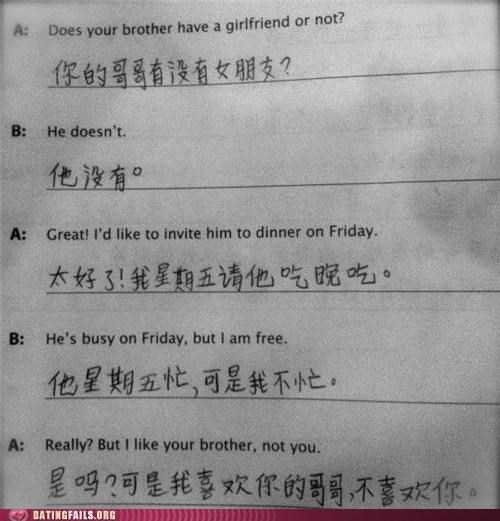 A: Does your brother have a girlfriend or not?
你的哥哥有没有女朋友?
B: He doesn't.
他没有。
A: Great! I'd like to invite him to dinner on Friday.
太好了!我星期五请他吃晚吃。
B: He's busy on Friday, but I am free.
他星期五忙,可是我不忙。
A: Really? But I like your brother, not you.
是吗?可是我喜欢你的哥哥,不喜欢你。
DATINGFAILS.ORG